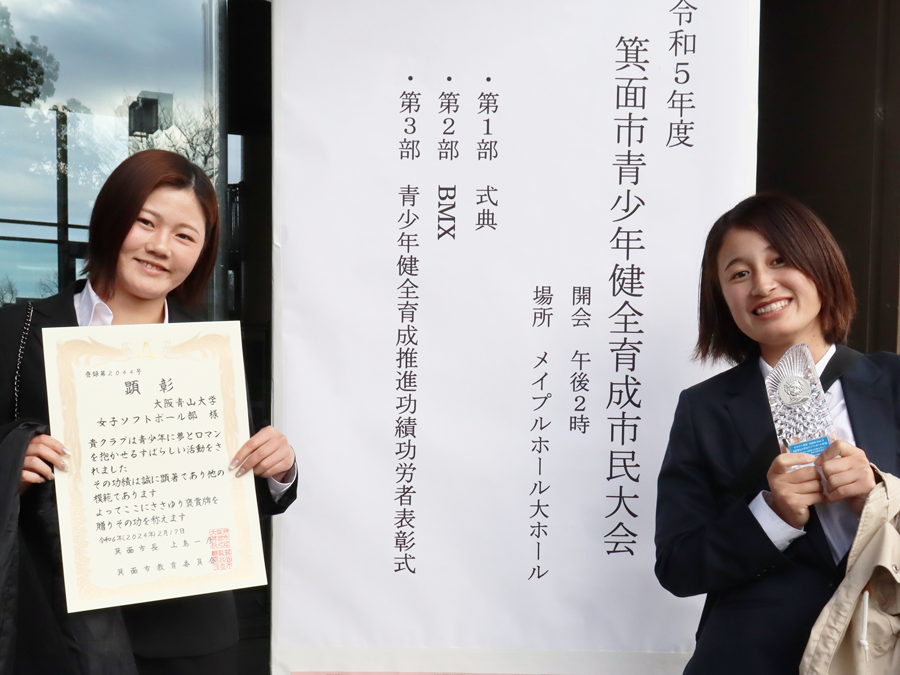 令和５年度
箕面市青少年健全育成市民大会
開会　午後２時
場所　メイプルホール大ホール
・第１部　式典
・第２部　BMX
・第３部　青少年健全育成推進功績功労者表彰式
登録第２０４４号
顕彰
大阪青山大学
女子ソフトボール部　様
貴クラブは青少年に夢とロマン
を抱かせるすばらしい活動をさ
れました
その功績は誠に顕著であり他の
模範であります
よってここにささゆり褒賞牌を
贈りその功を称えます
令和６年(２０２４年)２月１７日
箕面市長　上島一
箕面市教育委員会